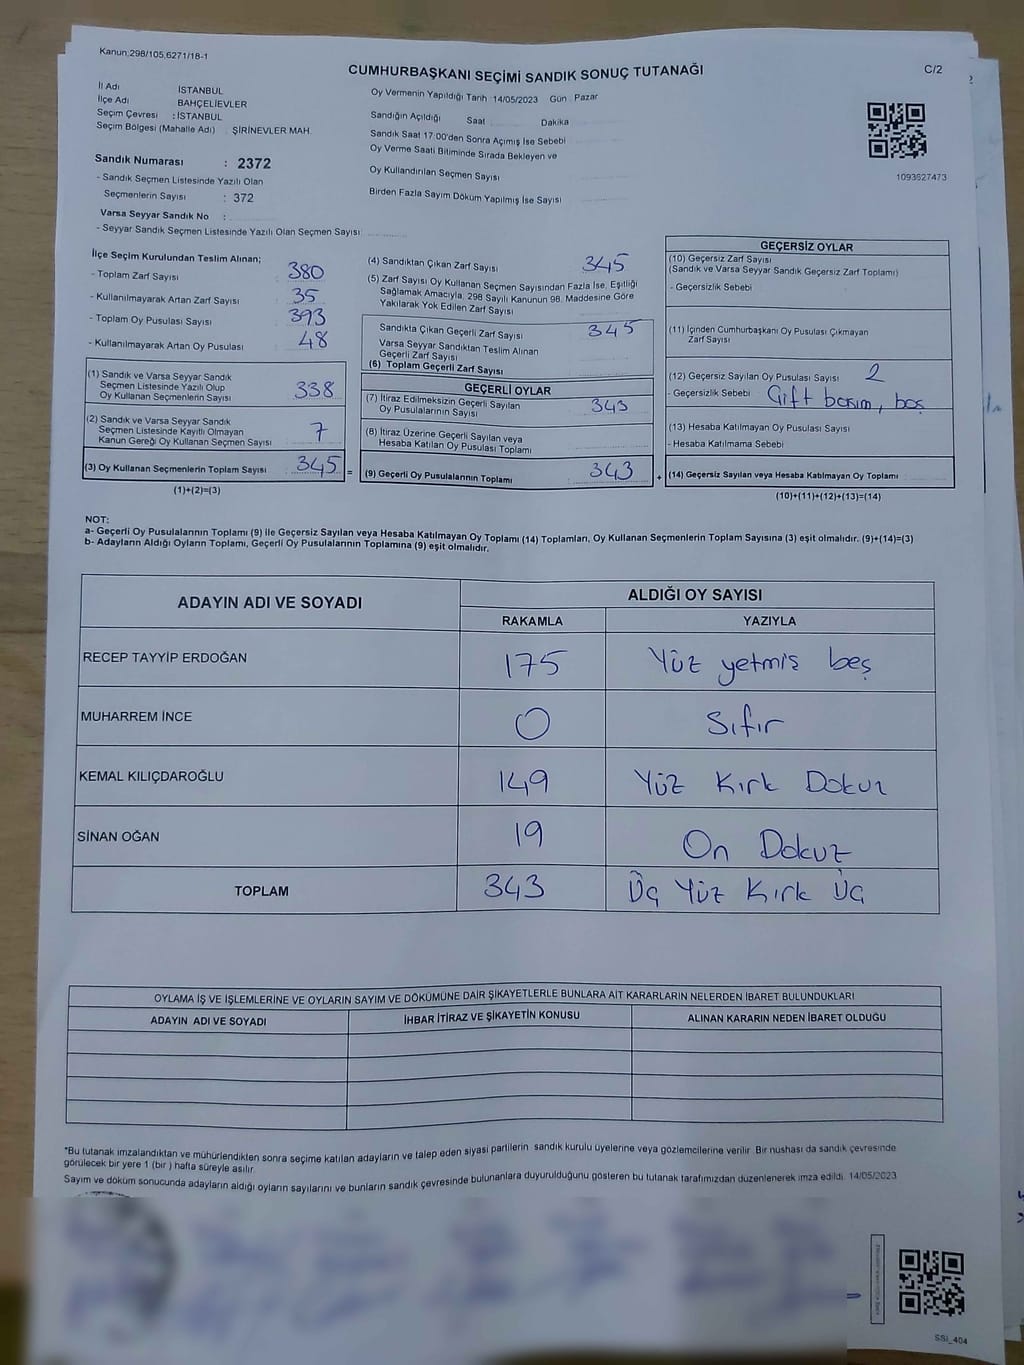 Kanun,298/105,6271/18-1
CUMHURBAŞKANI SEÇİMİ SANDIK SONUÇ TUTANAĞI
C/2
İl Adı İSTANBUL
İlçe Adı BAHÇELİEVLER
Seçim Çevresi : İSTANBUL
Seçim Bölgesi (Mahalle Adı) : ŞİRİNEVLER MAH.
Sandık Numarası : 2372
- Sandık Seçmen Listesinde Yazılı Olan
Seçmenlerin Sayısı : 372
Varsa Seyyar Sandık No :
- Seyyar Sandık Seçmen Listesinde Yazılı Olan Seçmen Sayısı:
Oy Vermenin Yapıldığı Tarih 14/05/2023 Gün : Pazar
Sandığın Açıldığı Saat Dakika
Sandık Saat 17:00'den Sonra Açımış İse Sebebi
Oy Verme Saati Bitiminde Sırada Bekleyen ve
Oy Kullandırılan Seçmen Sayısı
Birden Fazla Sayım Döküm Yapılmış İse Sayısı
1093627473
İlçe Seçim Kurulundan Teslim Alınan;
- Toplam Zarf Sayısı : 380
- Kullanılmayarak Artan Zarf Sayısı : 35
- Toplam Oy Pusulası Sayısı : 393
- Kullanılmayarak Artan Oy Pusulası : 48
(1) Sandık ve Varsa Seyyar Sandık
Seçmen Listesinde Yazılı Olup
Oy Kullanan Seçmenlerin Sayısı : 338
(2) Sandık ve Varsa Seyyar Sandık
Seçmen Listesinde Kayıtlı Olmayan
Kanun Gereği Oy Kullanan Seçmen Sayısı : 7
(3) Oy Kullanan Seçmenlerin Toplam Sayısı : 345 =
(1)+(2)=(3)
(4) Sandıktan Çıkan Zarf Sayısı : 345
(5) Zarf Sayısı Oy Kullanan Seçmen Sayısından Fazla İse, Eşitliği
Sağlamak Amacıyla, 298 Sayılı Kanunun 98. Maddesine Göre
Yakılarak Yok Edilen Zarf Sayısı
Sandıkta Çıkan Geçerli Zarf Sayısı : 345
Varsa Seyyar Sandıktan Teslim Alınan
Geçerli Zarf Sayısı
(6) Toplam Geçerli Zarf Sayısı
GEÇERLİ OYLAR
(7) İtiraz Edilmeksizin Geçerli Sayılan
Oy Pusulalarının Sayısı : 343
(8) İtiraz Üzerine Geçerli Sayılan veya
Hesaba Katılan Oy Pusulası Toplamı
(9) Geçerli Oy Pusulalarının Toplamı : 343 +
GEÇERSİZ OYLAR
(10) Geçersiz Zarf Sayısı
(Sandık ve Varsa Seyyar Sandık Geçersiz Zarf Toplamı)
- Geçersizlik Sebebi
(11) İçinden Cumhurbaşkanı Oy Pusulası Çıkmayan
Zarf Sayısı
(12) Geçersiz Sayılan Oy Pusulası Sayısı : 2
- Geçersizlik Sebebi : Çift basım, boş
(13) Hesaba Katılmayan Oy Pusulası Sayısı
- Hesaba Katılmama Sebebi
(14) Geçersiz Sayılan veya Hesaba Katılmayan Oy Toplamı
(10)+(11)+(12)+(13)=(14)
NOT:
a- Geçerli Oy Pusulalarının Toplamı (9) ile Geçersiz Sayılan veya Hesaba Katılmayan Oy Toplamı (14) Toplamları, Oy Kullanan Seçmenlerin Toplam Sayısına (3) eşit olmalıdır. (9)+(14)=(3)
b- Adayların Aldığı Oyların Toplamı, Geçerli Oy Pusulalarının Toplamına (9) eşit olmalıdır.
ADAYIN ADI VE SOYADI ALDIĞI OY SAYISI
RAKAMLA YAZIYLA
RECEP TAYYİP ERDOĞAN 175 Yüz yetmiş beş
MUHARREM İNCE 0 Sıfır
KEMAL KILIÇDAROĞLU 149 Yüz Kırk Dokuz
SİNAN OĞAN 19 On Dokuz
TOPLAM 343 Üç Yüz Kırk Üç
OYLAMA İŞ VE İŞLEMLERİNE VE OYLARIN SAYIM VE DÖKÜMÜNE DAİR ŞİKAYETLERLE BUNLARA AİT KARARLARIN NELERDEN İBARET BULUNDUKLARI
ADAYIN ADI VE SOYADI İHBAR İTİRAZ VE ŞİKAYETİN KONUSU ALINAN KARARIN NEDEN İBARET OLDUĞU
*Bu tutanak imzalandıktan ve mühürlendikten sonra seçime katılan adayların ve talep eden siyasi partilerin sandık kurulu üyelerine veya gözlemcilerine verilir. Bir nushası da sandık çevresinde
görülecek bir yere 1 (bir) hafta süreyle asılır.
Sayım ve döküm sonucunda adayların aldığı oyların sayılarını ve bunların sandık çevresinde bulunanlara duyurulduğunu gösteren bu tutanak tarafımızdan düzenlenerek imza edildi. 14/05/2023
SSİ_404